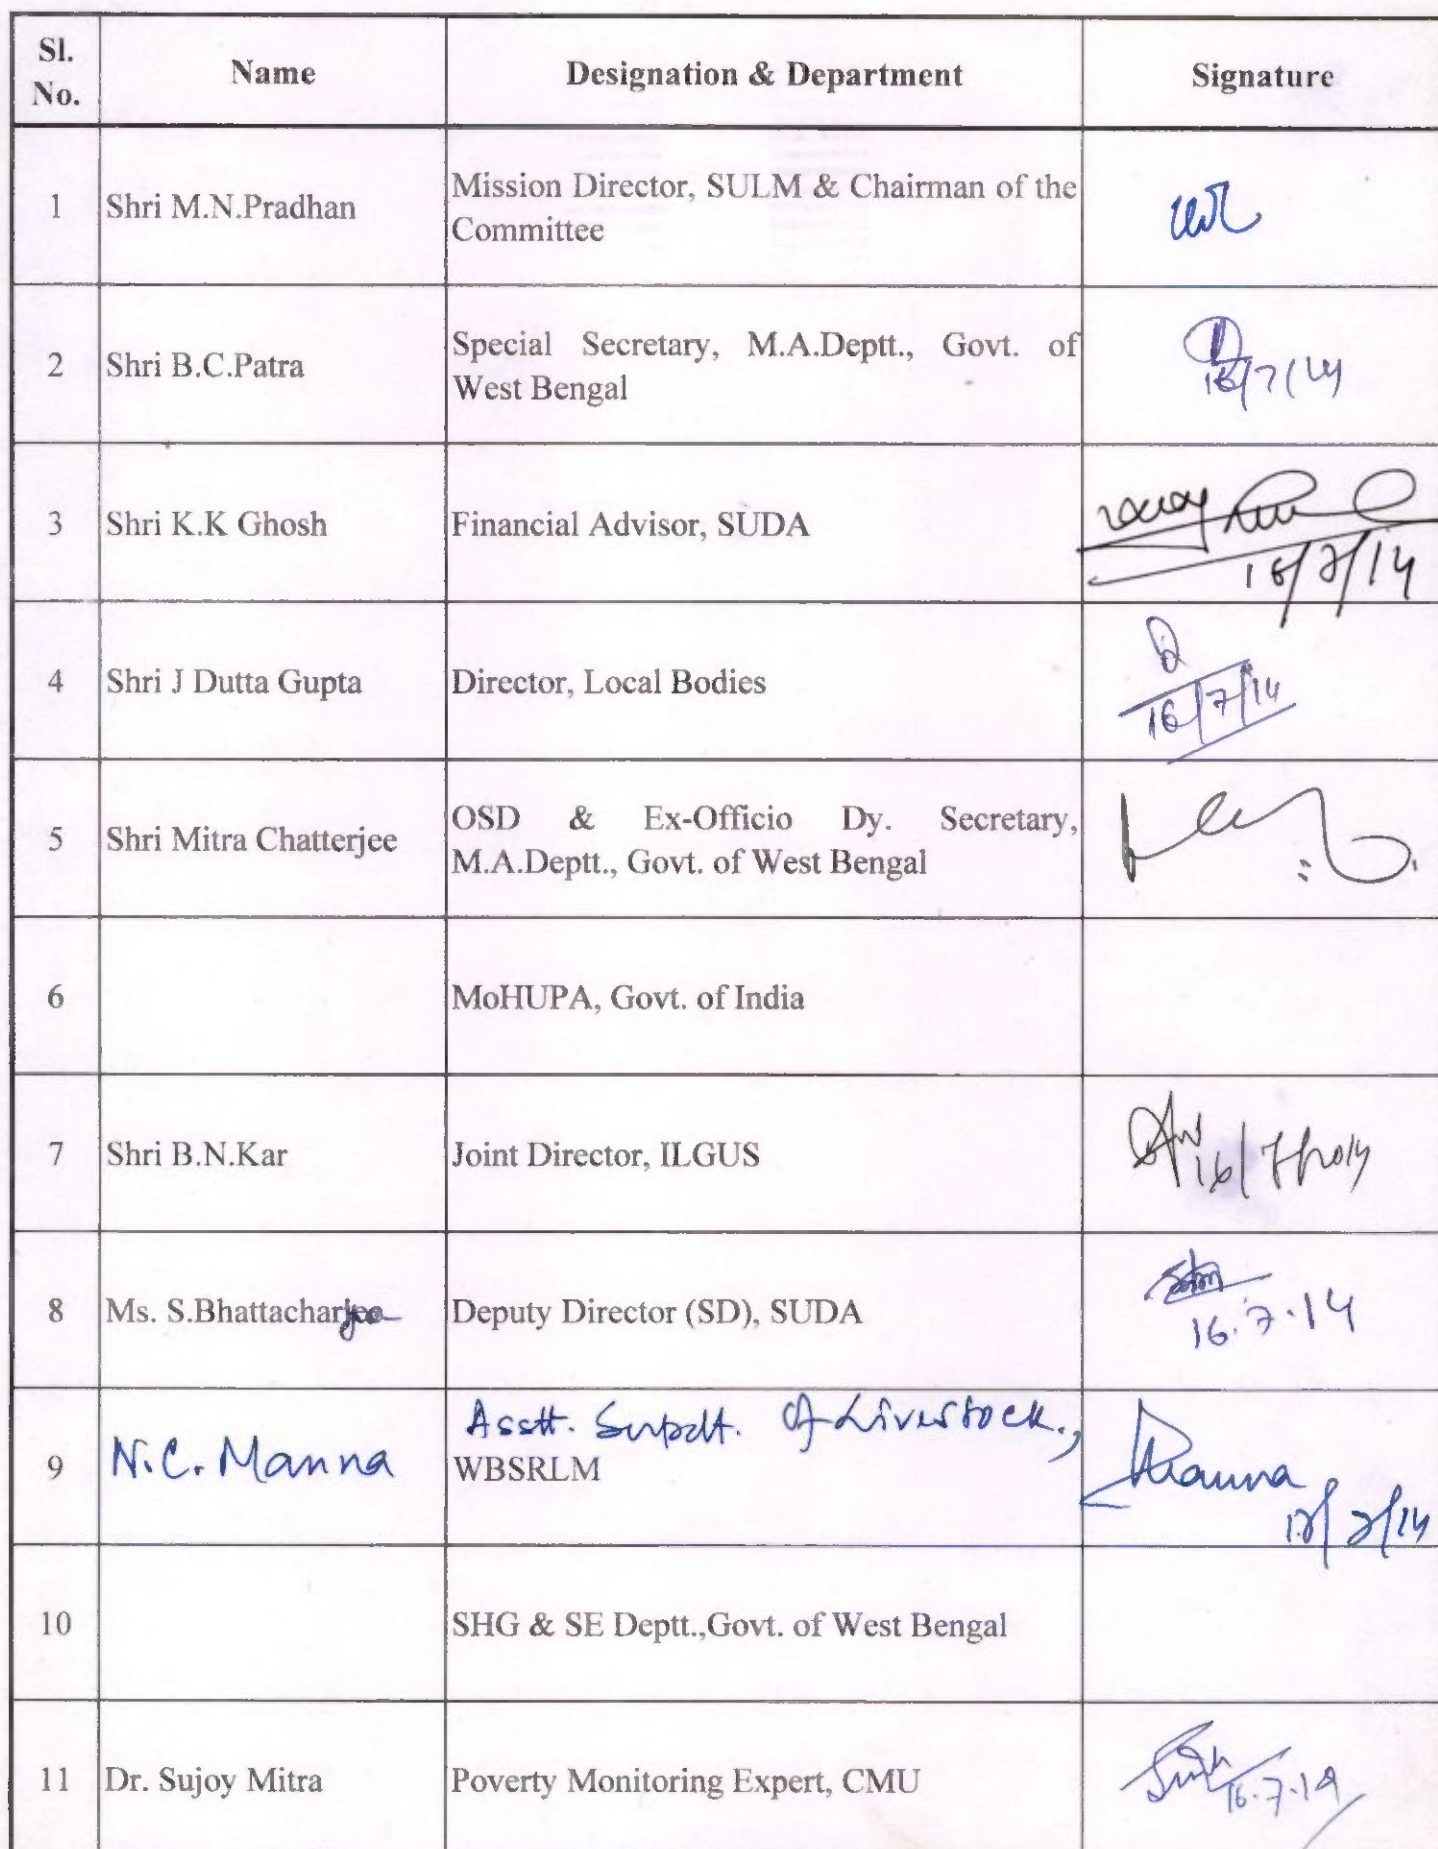 Sl. No. Name Designation & Department Signature
1 Shri M.N.Pradhan Mission Director, SULM & Chairman of the
Committee
2 Shri B.C.Patra Special Secretary, M.A.Deptt., Govt. of
West Bengal
16/7/14
3 Shri K.K Ghosh Financial Advisor, SUDA
16/7/14
4 Shri J Dutta Gupta Director, Local Bodies
16/7/14
5 Shri Mitra Chatterjee OSD & Ex-Officio Dy. Secretary,
M.A.Deptt., Govt. of West Bengal
6 MoHUPA, Govt. of India
7 Shri B.N.Kar Joint Director, ILGUS
16/7/2014
8 Ms. S.Bhattacharjee Deputy Director (SD), SUDA
16.7.14
9 N.C. Manna Asstt. Supdt. Of Livestock.,
WBSRLM
Manna
10 SHG & SE Deptt.,Govt. of West Bengal
11 Dr. Sujoy Mitra Poverty Monitoring Expert, CMU
16.7.14